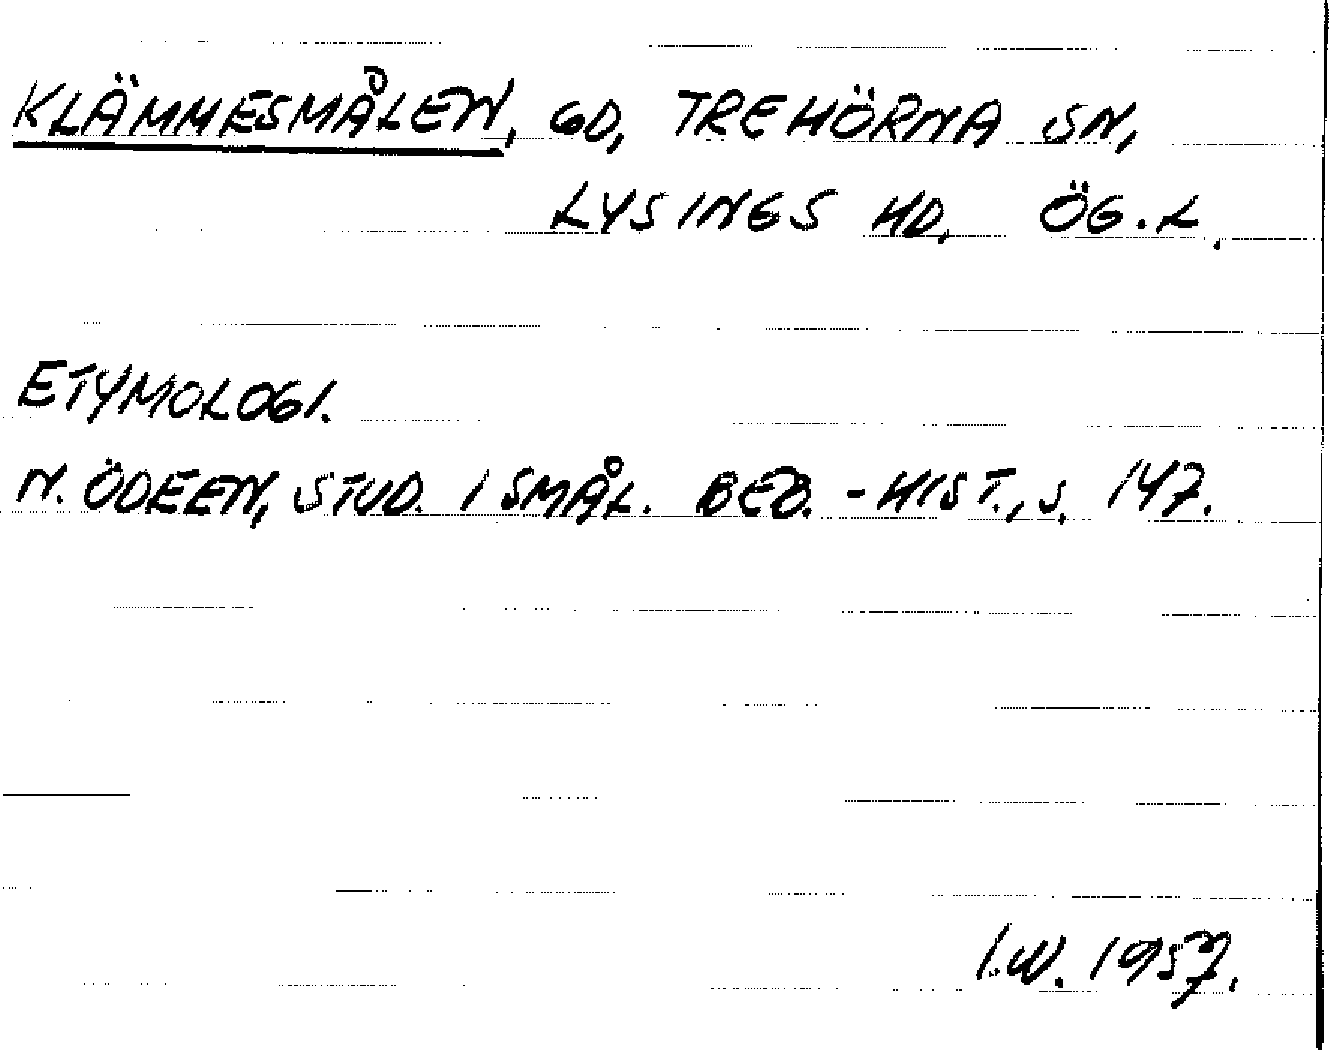 KLÄMMESMÅLEN, GD, TREHÖRNA SN,
LYSINGS HD, ÖG.L,
ETYMOLOGI.
N. ÖDEEN, STUD. I SMÅL. BEB.-HIST., S. 147.
I.W. 1957.